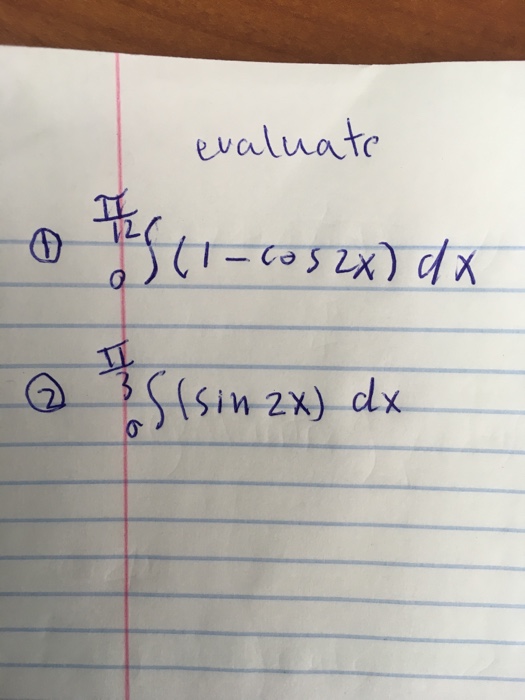 evaluate
① π/12 0 ∫ (1 - cos 2x) dx
② π/3 0 ∫ (sin 2x) dx